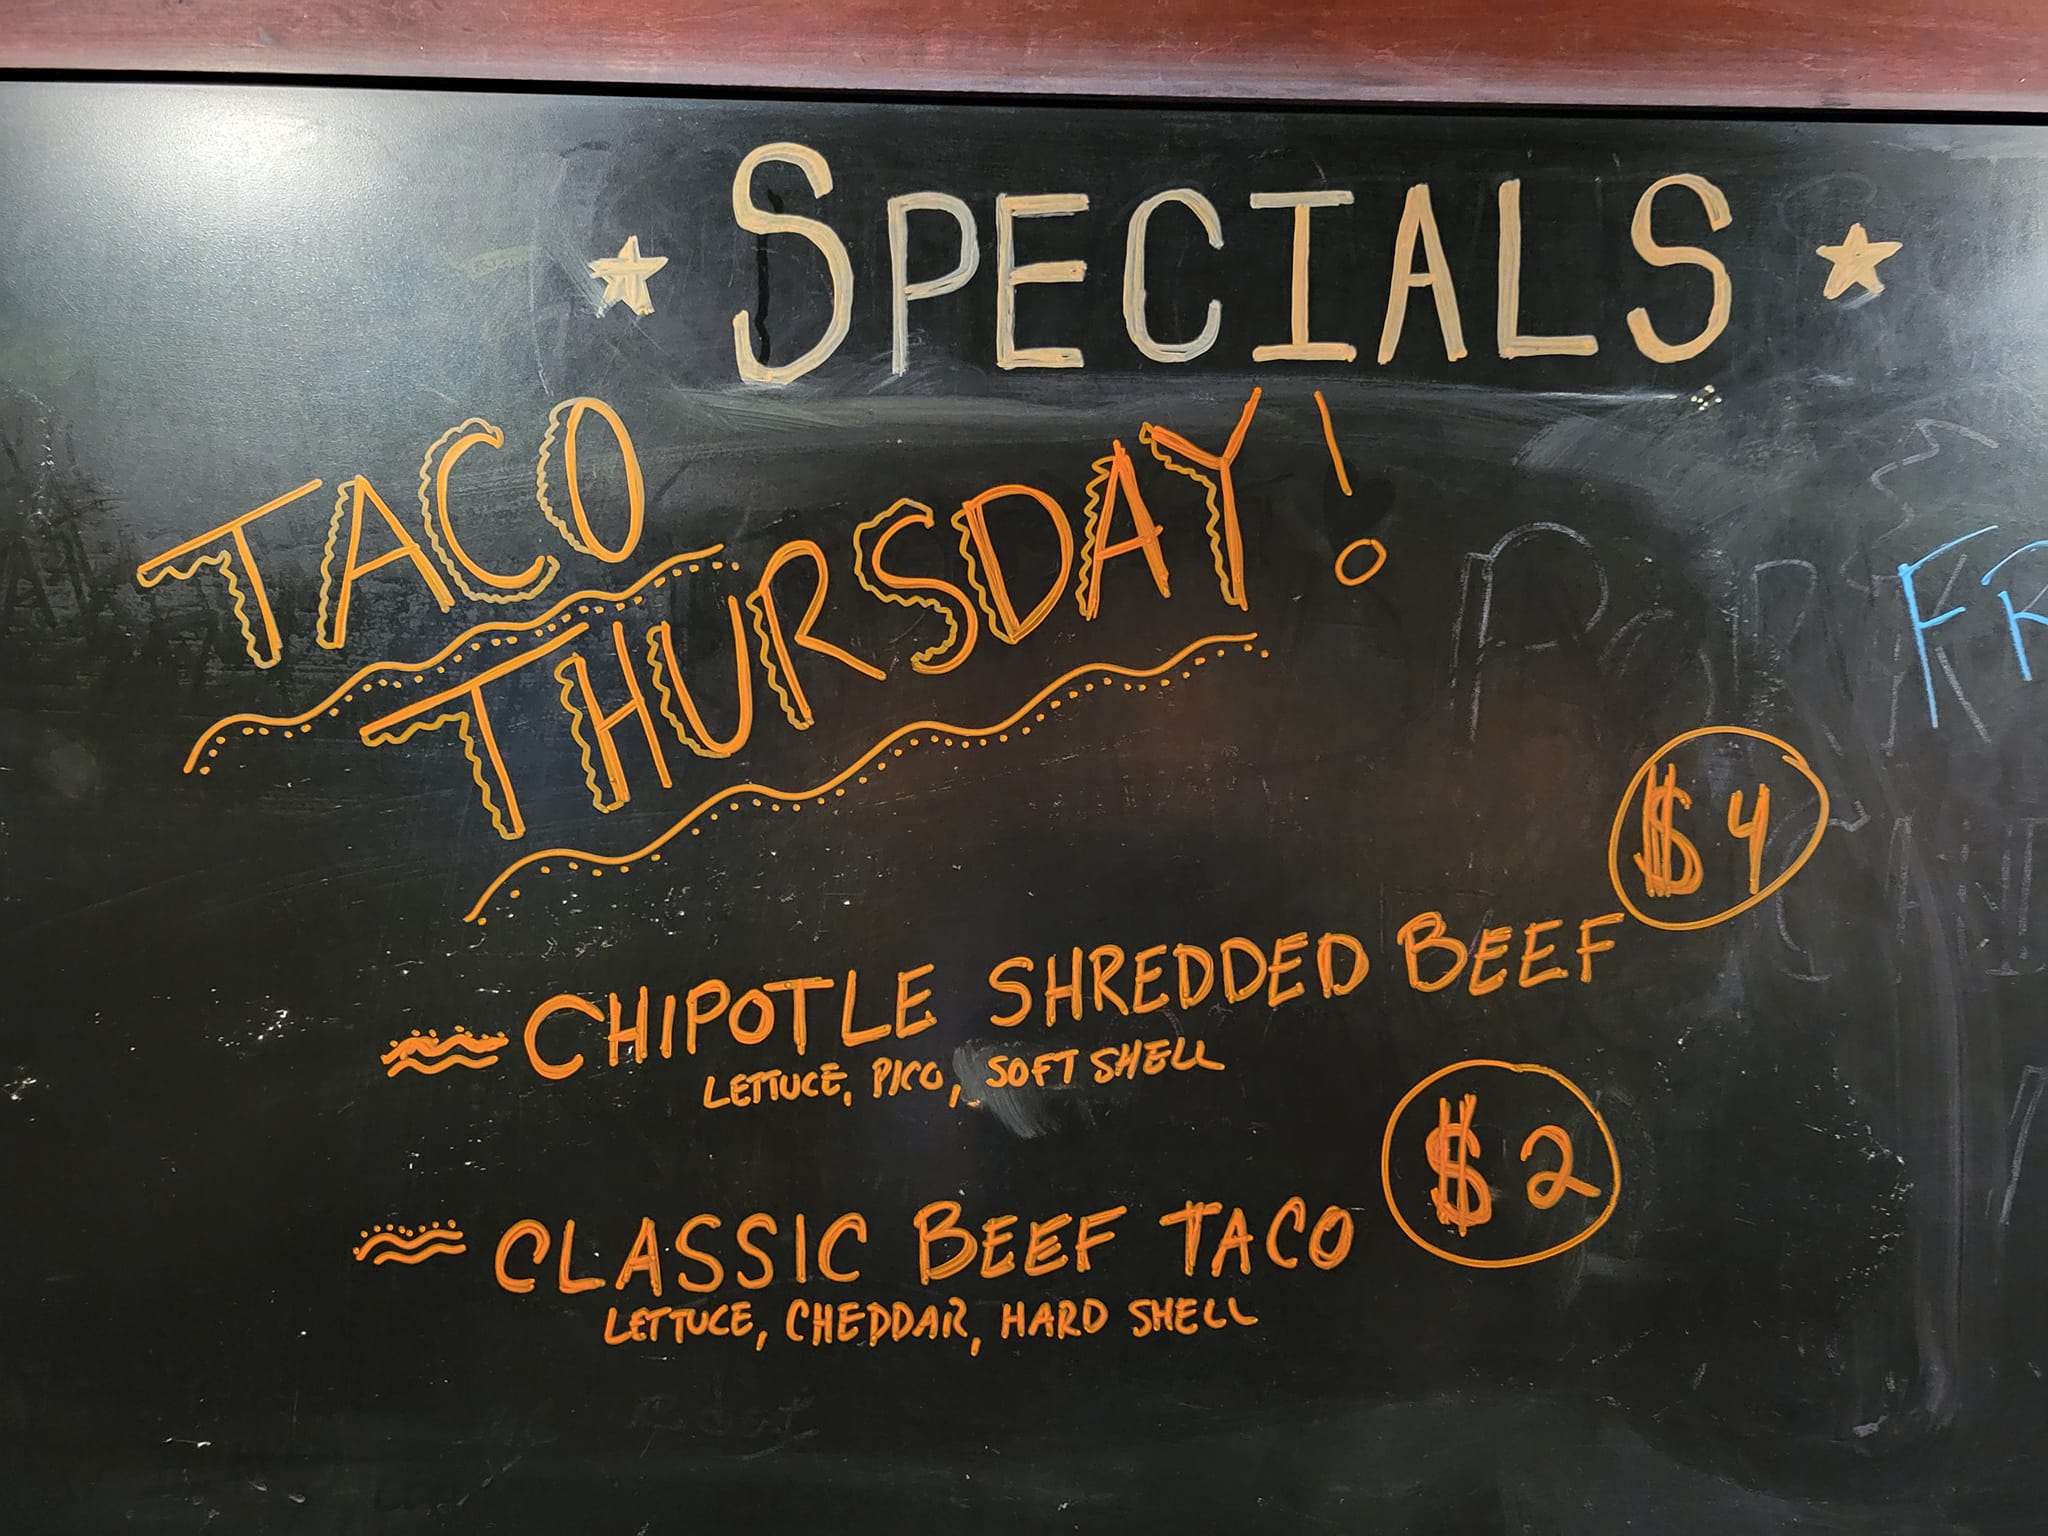 SPECIALS
TACO
THURSDAY!
$4
CHIPOTLE SHREDDED BEEF
LETTUCE, PICO, SOFT SHELL
$2
CLASSIC BEEF TACO
LETTUCE, CHEDDAR, HARD SHELL
FR